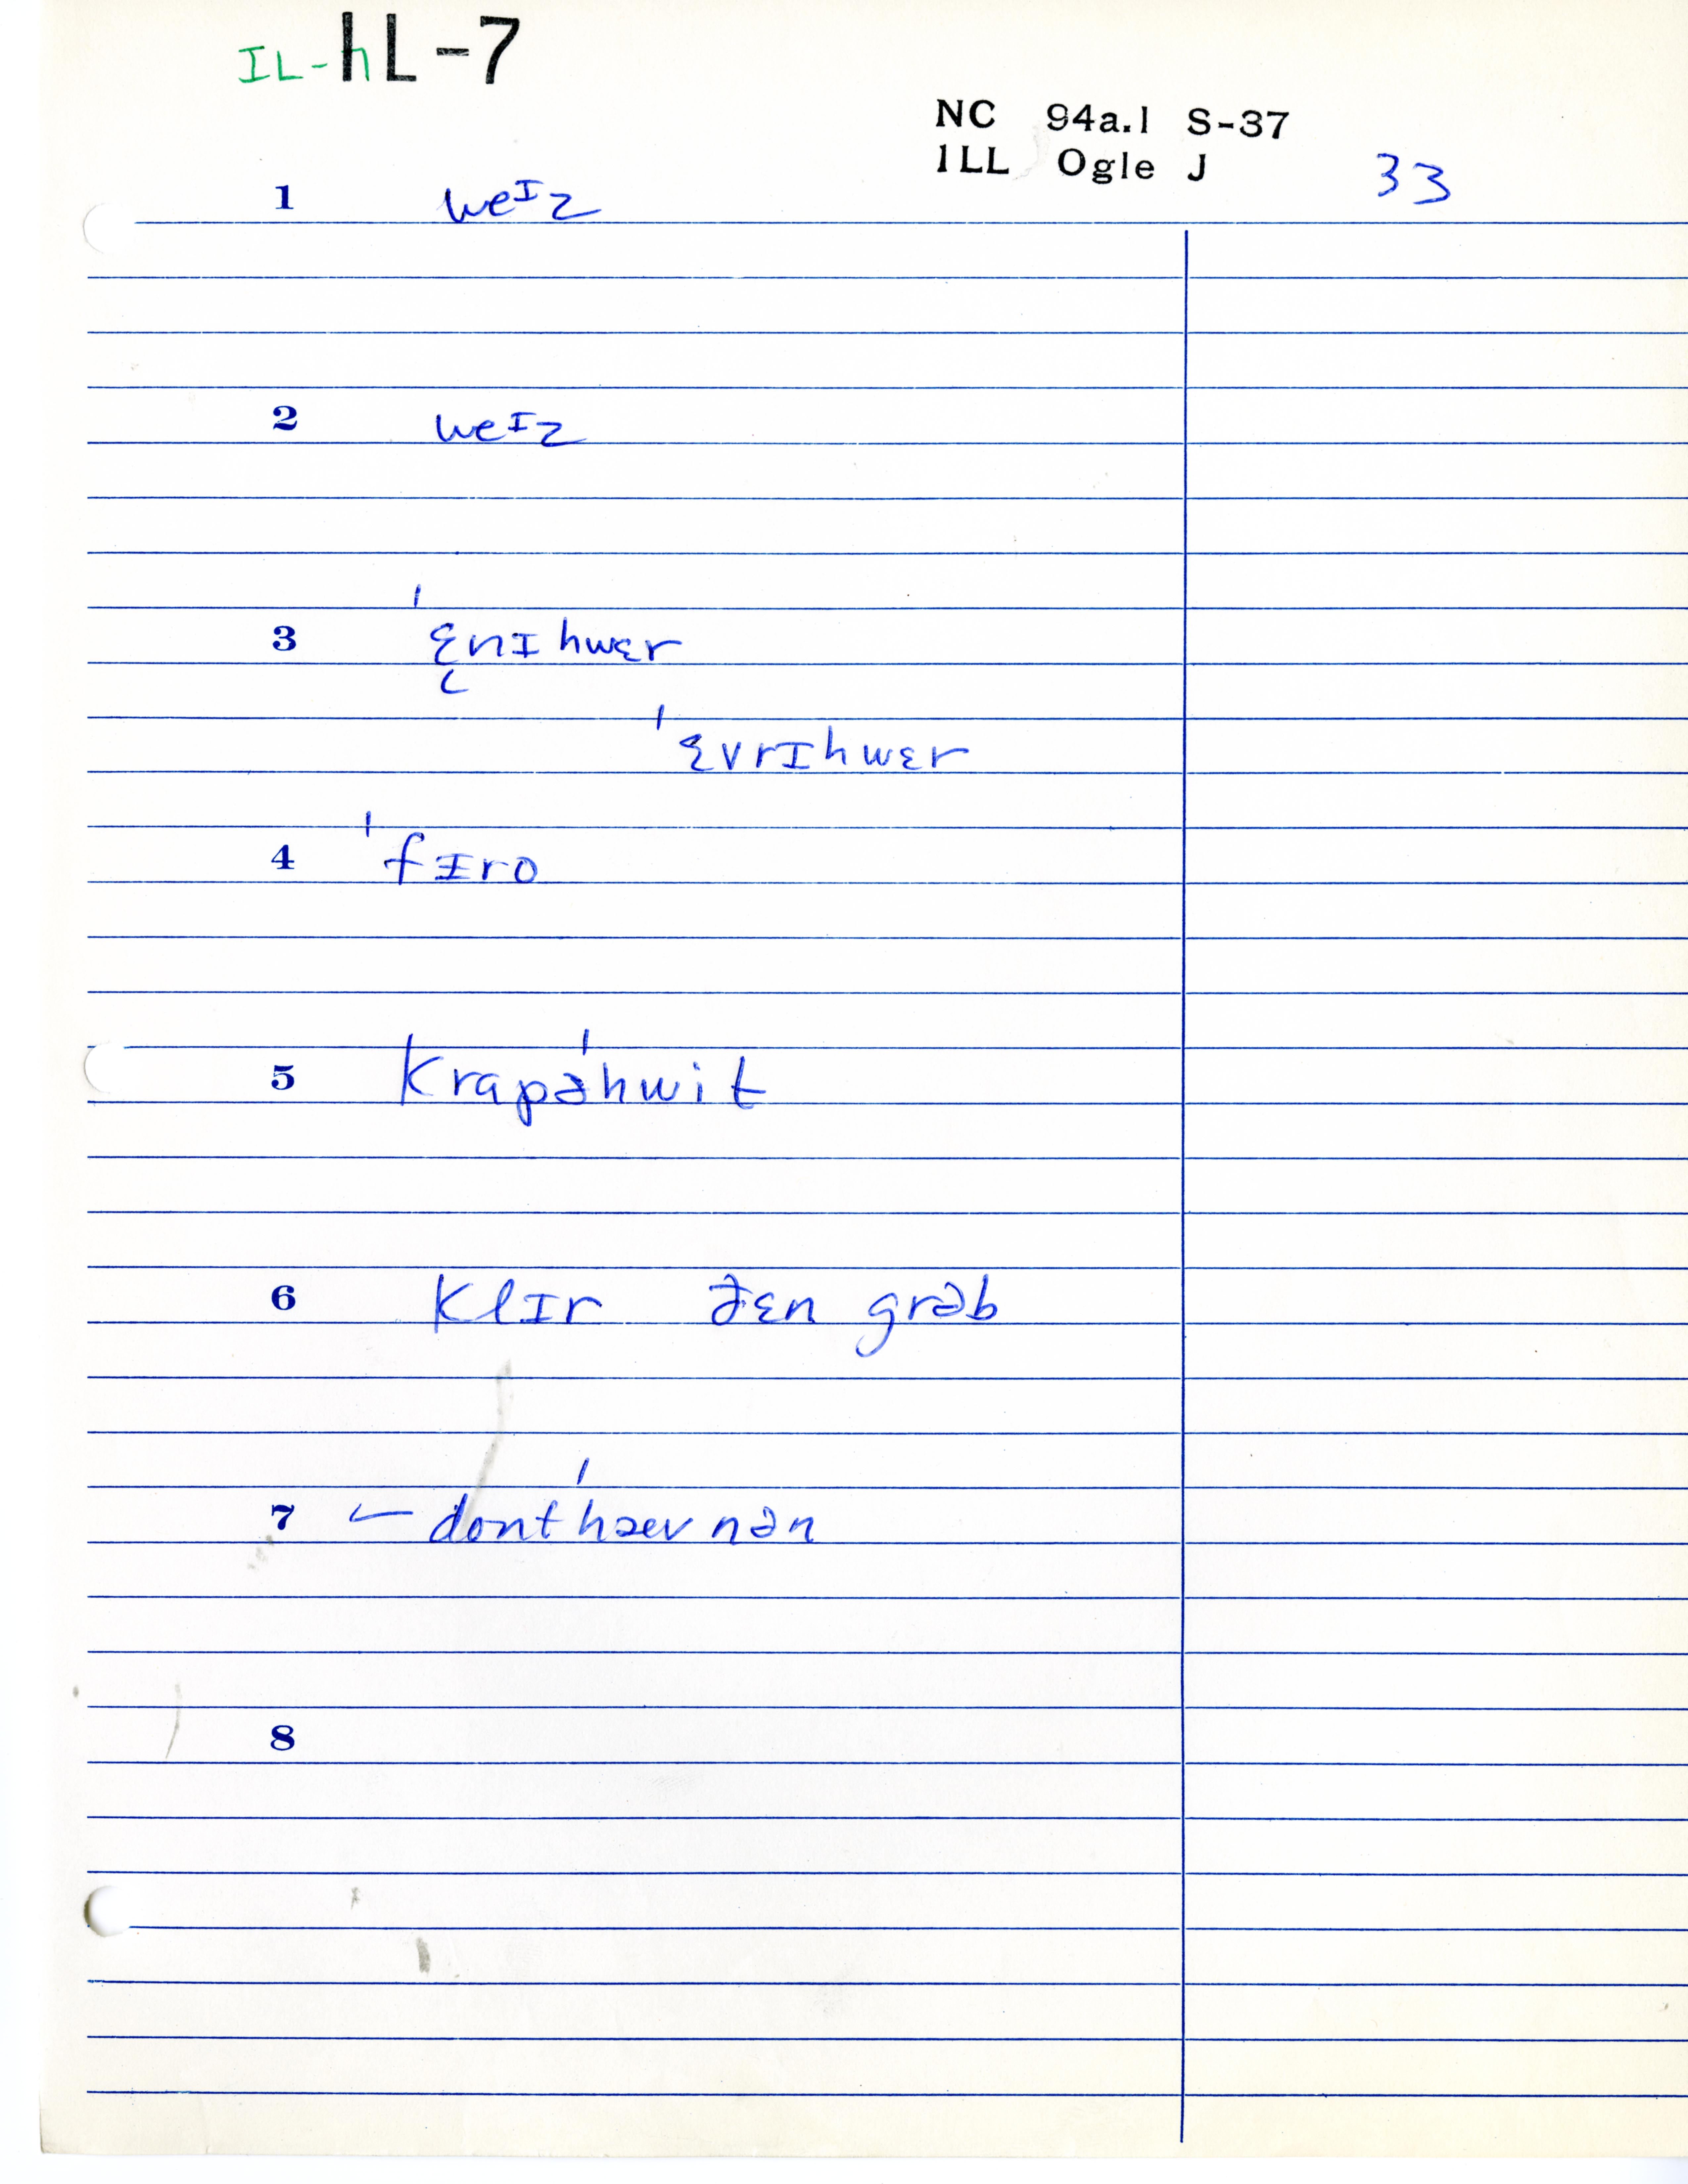 IL-hL-7
NC 94a.1 S-37
ILL Ogle J 33
1 weᴵz
2 weᴵz
3 ˈɛ̜nɪhwɛr
ˈɛvrɪhwɛr
4 ˈfɪro
5 krapəˈhwit
6 klɪr ðɛn grəb
7 ← dontˈhæv nən
8